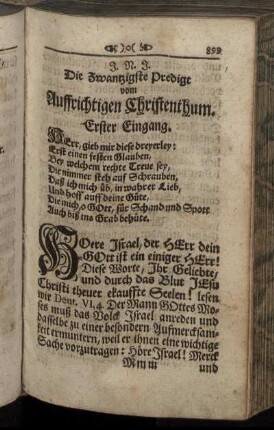 899
J. N. J.
Die Zwantzigste Predigt
vom
Auffrichtigen Christenthum.
Erster Eingang.
HErr, gieb mir diese dreyerley:
Erst einen festen Glauben,
Bey welchem rechte Treue sey,
Die nimmer steh auf Schrauben,
Daß ich mich üb, in wahrer Lieb,
Und hoff auff deine Güte,
Die mich, o GOtt, für Schand und Spott
Auch biß ins Grab behüte.
HOere Israel, der HErr dein
GOtt ist ein einiger HErr!
Diese Worte, Ihr Geliebte,
und durch das Blut JEsu
Christi theuer erkauffte Seelen! lesen
wir Deut. VI, 4. Der Mann GOttes Mo-
ses muß das Volck Israel anreden und
dasselbe zu einer besondern Aufmercksam-
keit ermuntern, weil er ihnen eine wichtige
Sache vorzutragen: Höre Israel! Merck
Mmm und